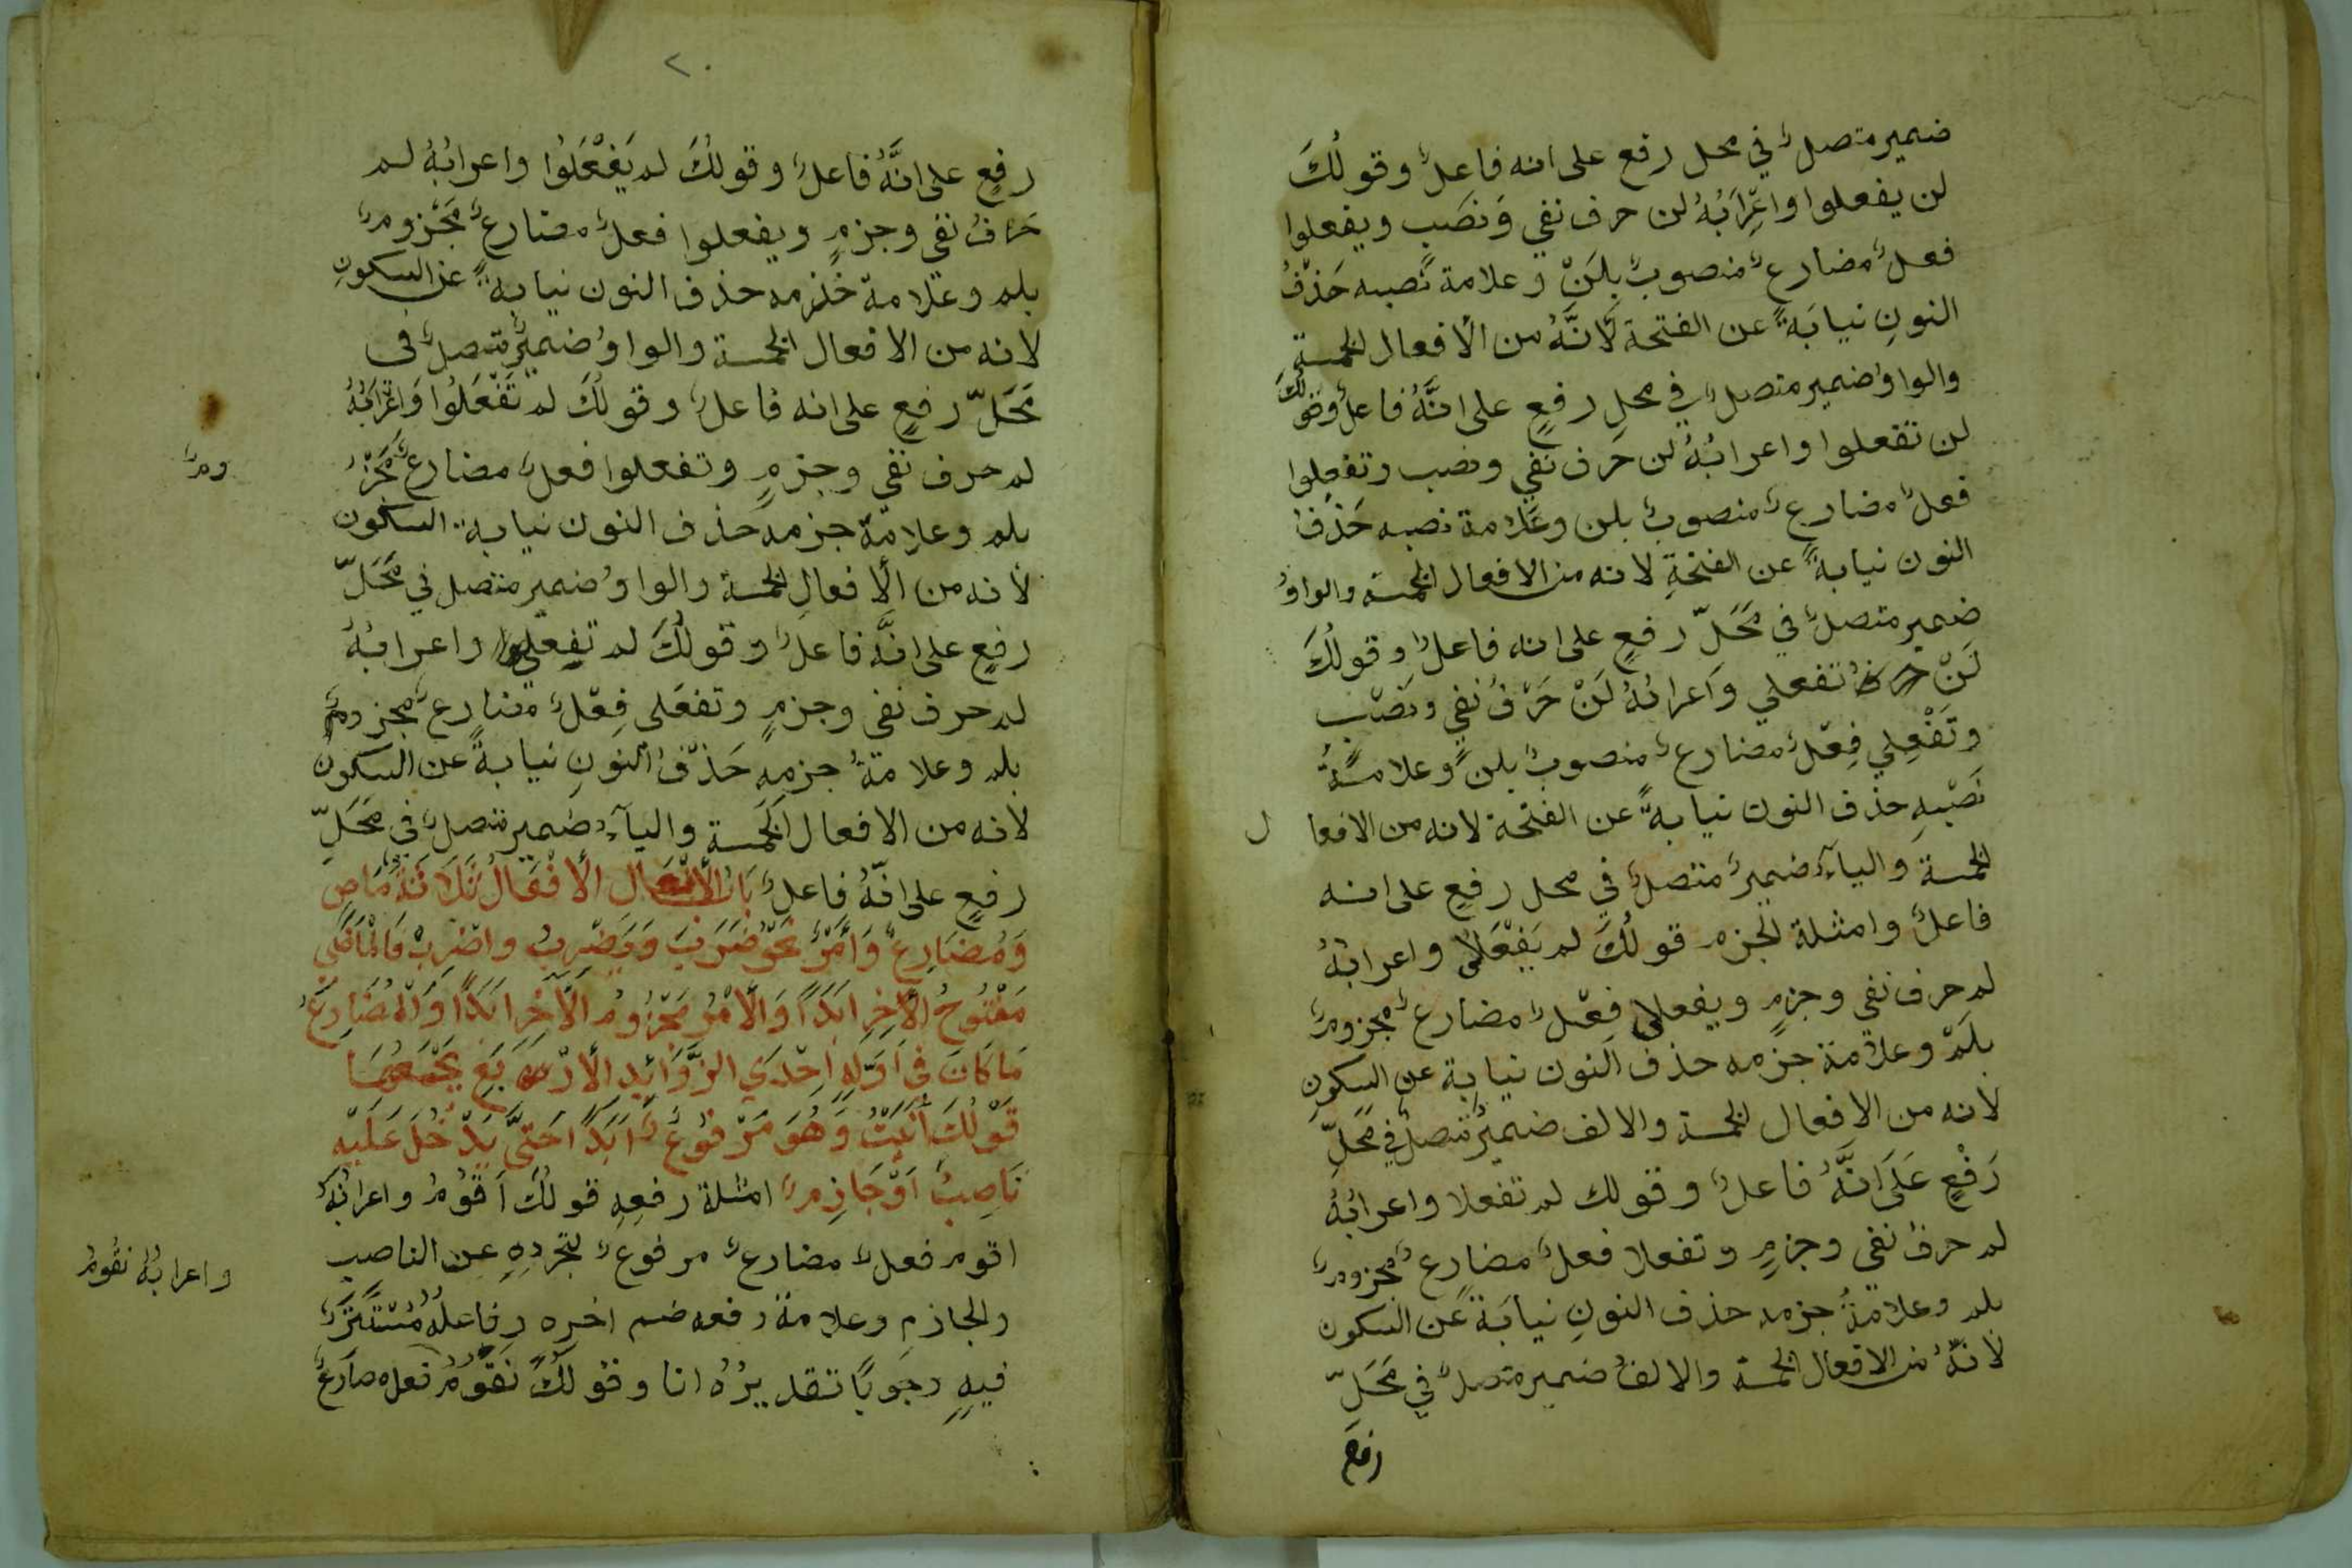 ضمير متصلٌ في محل رفع على انه فاعلٌ وقولُكَ
لن يفعلوا واعِْرَابُهُ لن حرف نفي وَنصَبٍ ويفعلوا
فعلٌ مضارعٌ منصوبٌ بلَنْ وعلامة نَصبه حَذْفُ
النونِ نيابَةً عن الفتحة لَانَّهُ من الأفعال الخمسةِ
والواوُ ضمير متصلٌ في محلِ رفعٍ على انَّهُ فاعلٌ وقولُكَ
لن تفعلوا واعرابُهُ لن حَرف نَفيٍ ونصب وتفعلوا
فعلٌ مضارعٌ منصوبٌ بلن وعَلَامة نصبه حَذفُ
النون نيابةً عن الفتحةِ لانه من الافعال الخمسة والواوُ
ضمير متصلٌ في مَحَلّ رفعٍ على انه فاعلٌ وقولُكَ
لَنْ تفعلي وَاعرابُهُ لَنْ حَرْفُ نفيٍ ونَصْبٍ
وتَفْعلِي فِعْلٌ مضارعٌ منصوبٌ بلن وعلامَةُ
نَصْبِهِ حذف النون نيابةً عن الفتحة لانه من الافعال
الخمسة والياءُ ضميرٌ متصلٌ في محل رفعٍ على انه
فاعلٌ وامثلة الجزم قولُكَ لم يَفْعَلَا واعرابُهُ
لم حرف نفي وجزمٍ ويفعلا فِعْلٌ مضارعٌ مجزومٌ
بلَمْ وعلامة جزمه حذف النون نيابة عن السكونِ
لانه من الافعال الخمسة والالف ضميرٌ متصلٌ في مَحَلِّ
رَفْعٍ عَلَى انَّهُ فاعلٌ وقولك لم تفعلا واعرابُهُ
لم حرفُ نفي وجزمٍ وتفعلا فعلٌ مضارعٌ مجزومٌ
بلم وعلامةُ جزمه حذف النونِ نيابَةً عَن السكون
لانَّهُ من الافعال الخمسة والالفُ ضمير متصلٌ في مَحَلِّ
رفع
٢٠
رفعٍ على انَّهُ فاعلٌ وقولُكَ لم يَفْعَلُوا واعرابُهُ لم
حَرفُ نفي وجزمٍ ويفعلوا فعلٌ مضارعٌ مَجْزومٌ
بلم وعلامة جزمه حذف النون نيابةً عن السكونِ
لانه من الافعال الخمسة والواوُ ضميرٌ متصلٌ في
مَحَلّ رفعٍ على انه فاعلٌ وقولُكَ لم تَفْعَلُوا وَاعْرَابُهُ
لم حرف نفي وجزمٍ وتفعلوا فعلٌ مضارعٌ مَجْزومٌ
بلم وعلامَة جزمه حَذف النون نيابة السكون
لأنه من الأفعالِ الخمسة والواوُ ضمير متصل في مَحَلّ
رفعٍ على انَّه فاعلٌ وقولُكَ لم تفعلي واعرابُهُ
لم حرف نفي وجزمٍ وتفعَلي فِعْلٌ مضارعٌ مجزومٌ
بلم وعلامةُ جزمِهِ حَذْفُ النونِ نيابةً عن السكون
لانه من الافعال الخَمسة والياءُ ضمير متصلٌ في مَحَلّ
رفعٍ على انّهُ فاعلٌ بَابُ الأَفْعَال الأَفْعَالُ ثَلَاثَةٌ مَاضٍ
وَمُضَارِعٌ وَأَمْرٌ نَحْوُ ضَرَبَ وَيَضْرِبُ واضْرِبْ فَالْمَاضِي
مَفْتُوحُ الأَخِرِ ابَدًا وَالأَمْرُ مَجْزُومُ الأَخِرِ ابَدًا وَالْمُضَارِعُ
مَا كَانَ فِي اَوَّلِهِ اِحْدَي الزَّوَائِدِ الأَرْبَعِ يَجْمَعُهَا
قَوْلُكَ أَنَيْتُ وَهُوَ مَرْفُوعٌ اَبَدًا حَتَّى يَدْخُلَ عَلَيْهِ
نَاصِبٌ اَوْ جَازِمٌ امثلة رفعِهِ قولُكَ اَقُوْمُ واعرابُهُ
اقوم فعلٌ مضارعٌ مرفوعٌ لتجردِهِ عن الناصبِ
والجازمِ وعلامة رفعه ضم اخره وفاعلُهُ مُسْتَتَرٌ
فيهِ وجوبًا تقديرُهُ انا وقولُكَ نَقُومُ فعل مضارعٌ
واعرابُهُ نقُومُ